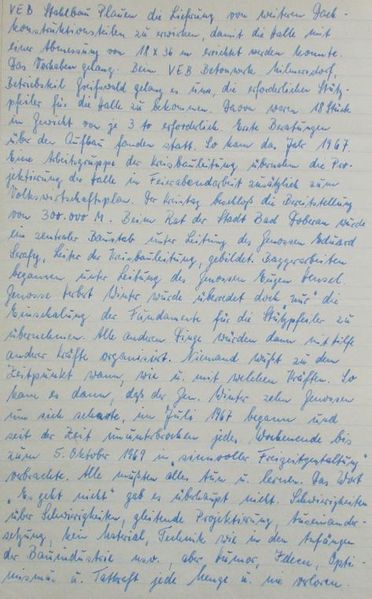 VEB Stahlbau Plauen die Lieferung von weiteren Dach-
konstruktionsteilen zu erreichen, damit die Halle mit
einer Abmessung von 18 x 36 m errichtet werden konnte.
Das Vorhaben gelang. Beim VEB Betonwerk Milmersdorf,
Betriebsteil Greifswald gelang es uns, die erforderlichen Stütz-
pfeiler für die Halle zu bekommen. Davon waren 18 Stück
im Gewicht von je 3 to erforderlich. Erste Beratungen
über den Aufbau fanden statt. So kam das Jahr 1967
Eine Arbeitsgruppe der Kreisbauleitung übernahm die Pro-
jektierung die Halle in Feierabendarbeit zusätzlich zum
Volkswirtschaftsplan. Der Kreistag beschloß die Bereitstellung
von 300.000 M. Beim Rat der Stadt Bad Doberan wurde
ein zentraler Baustab unter Leitung des Genossen Eduard
Leiter der Kreisbauleitung, gebildet. Baggerarbeiten
begannen unter Leitung des Genossen Eugen Hensel.
Genosse Winter wurde überredet doch "nur" die
Einschalung der Fundamente für die Stützpfeiler zu
übernehmen. Alle anderen Dinge würden dann mit Hilfe
anderer Kräfte organisiert. Niemand wußte zu dem
Zeitpunkt wann, wie u. mit welchen Kräften. So
kam es dann, daß der Gen. Winter zehn Genossen
um sich scharte, im Juli 1967 begann und
seit der Zeit ununterbrochen jedes Wochenende bis
zum 5. Oktober 1969 in "sinnvoller Freizeitgestaltung"
verbrachte. Alle mußten alles tun u. lernen. Das Wort
"Es geht nicht" gab es überhaupt nicht. Schwierigkeiten
über Schwierigkeiten, gleitende Projektierung, Auseinander-
setzung, kein Material, Technik wie in den Anfängen
der Bauindustrie usw., aber Humor, Ideen, Opti-
mismus u. Tatkraft jede Menge u. nie verloren.